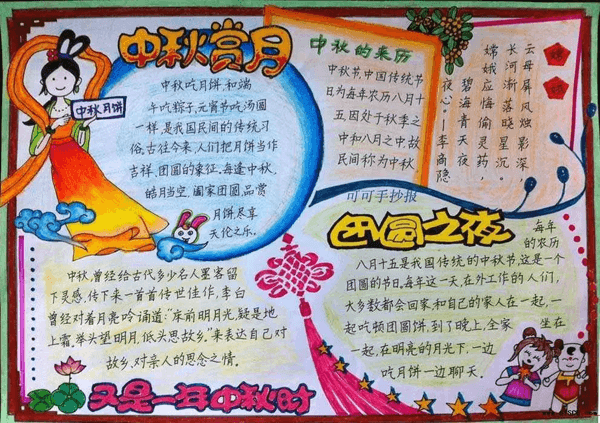 中秋赏月
中秋月饼
中秋吃月饼,和端
午吃粽子,元宵节吃汤圆
一样,是我国民间的传统习
俗。古往今来,人们把月饼当作
吉祥、团圆的象征。每逢中秋,
皓月当空,阖家团圆,品尝
月饼尽享
天伦之乐。
中秋的来历
中秋节,中国传统节
日为每年农历八月十
五因处于秋季之
中和八月之中故
民间称为中秋
嫦娥
云母屏风烛影深
长河渐落晓星沉。
嫦娥应悔偷灵药
碧海青天夜
夜心。——李商隐
可可手抄报
团圆之夜
每年
的农历
八月十五是我国传统的中秋节,这是一个
团圆的节日。每年这一天,在外工作的人们,
大多数都会回家,和自己的家人在一起,一
起吃顿团圆饼,到了晚上,全家坐在
一起,在明亮的月光下,一边
吃月饼一边聊天.
中秋,曾经给古代多少名人墨客留
下灵感,传下来一首首传世佳作,李白
曾经对着月亮吟诵道:"床前明月光,疑是地
上霜,举头望明月,低头思故乡。"来表达自己对
故乡,对亲人的思念之情。
又是一年中秋时